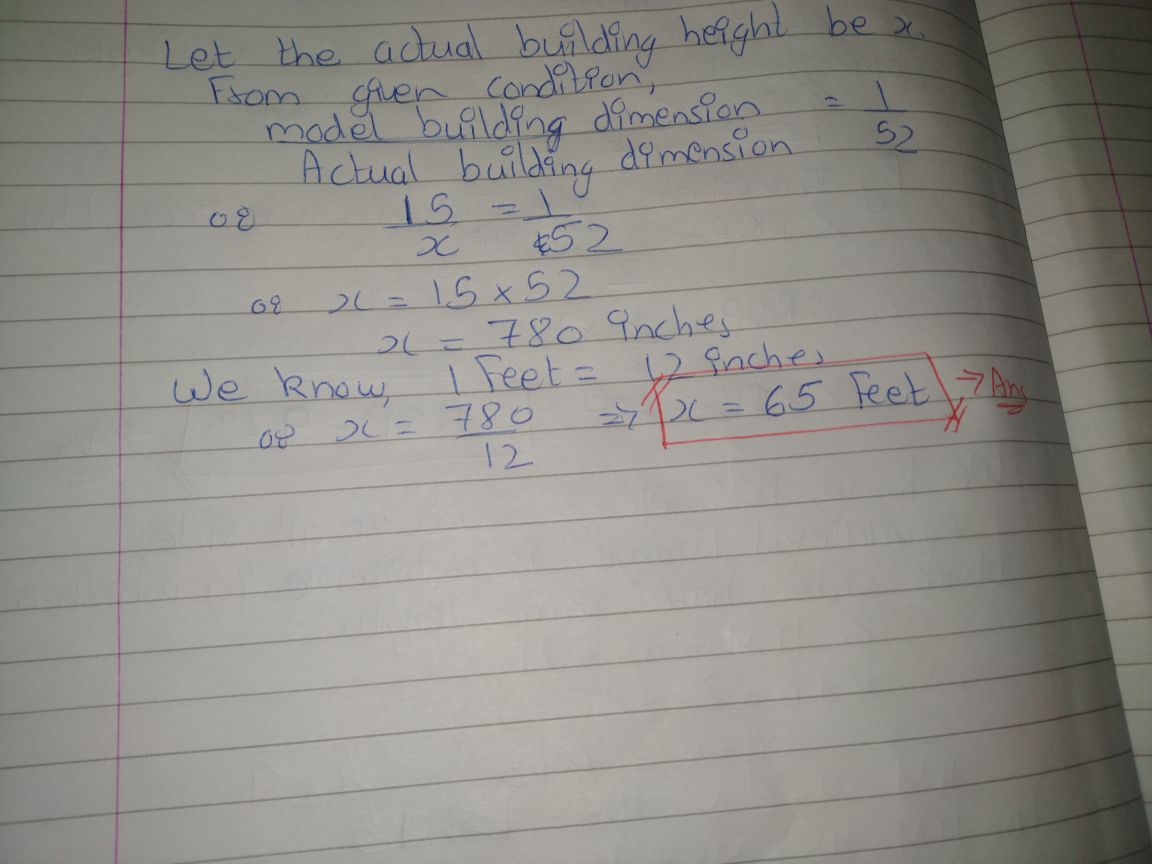 Let the actual building height be x.
From given condition,
model building dimension / Actual building dimension = 1/52
or 15/x = 1/52
or x = 15 × 52
x = 780 inches
We know, 1 Feet = 12 inches
or x = 780/12 => x = 65 Feet → Ans